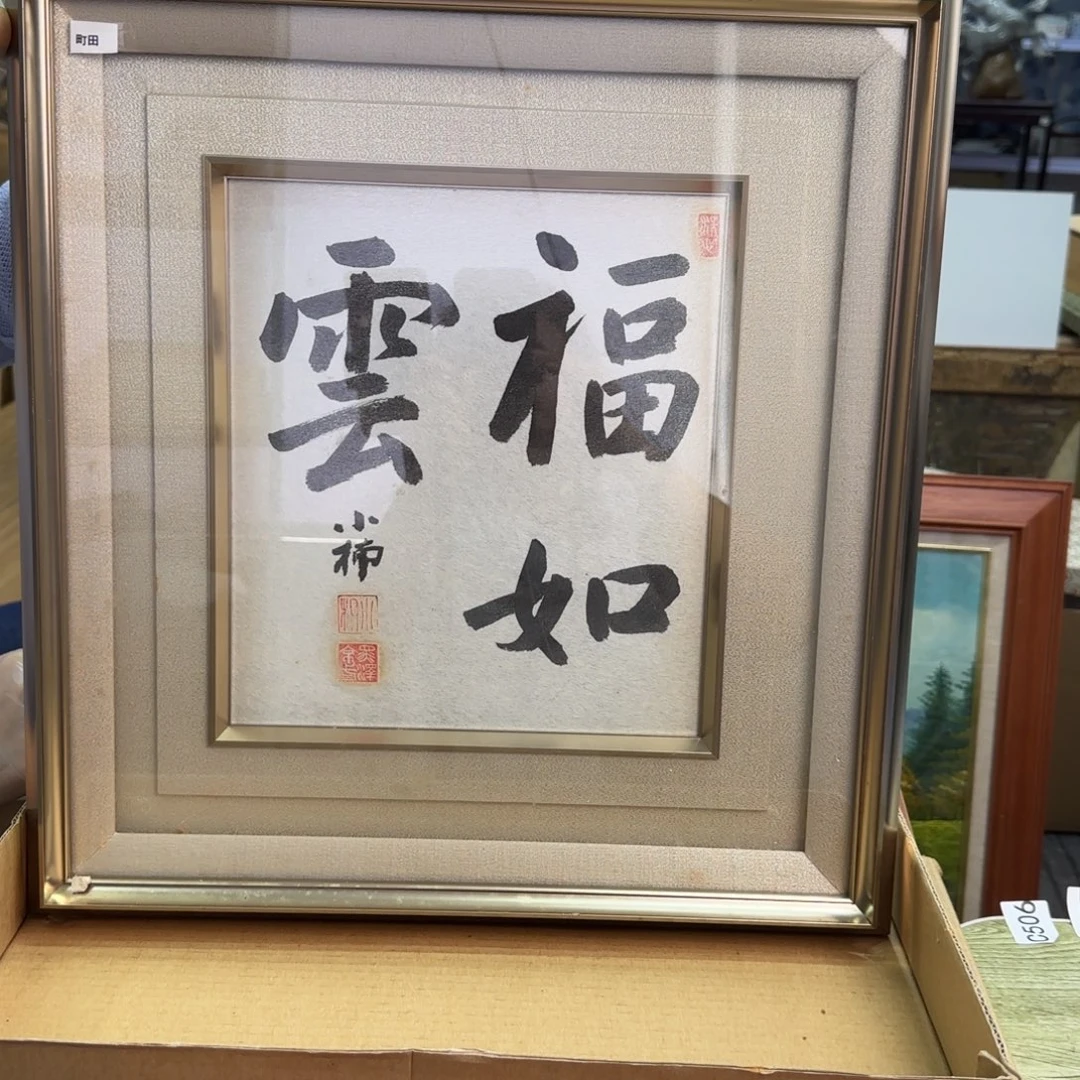 町田
福如
雲
小楠
C506